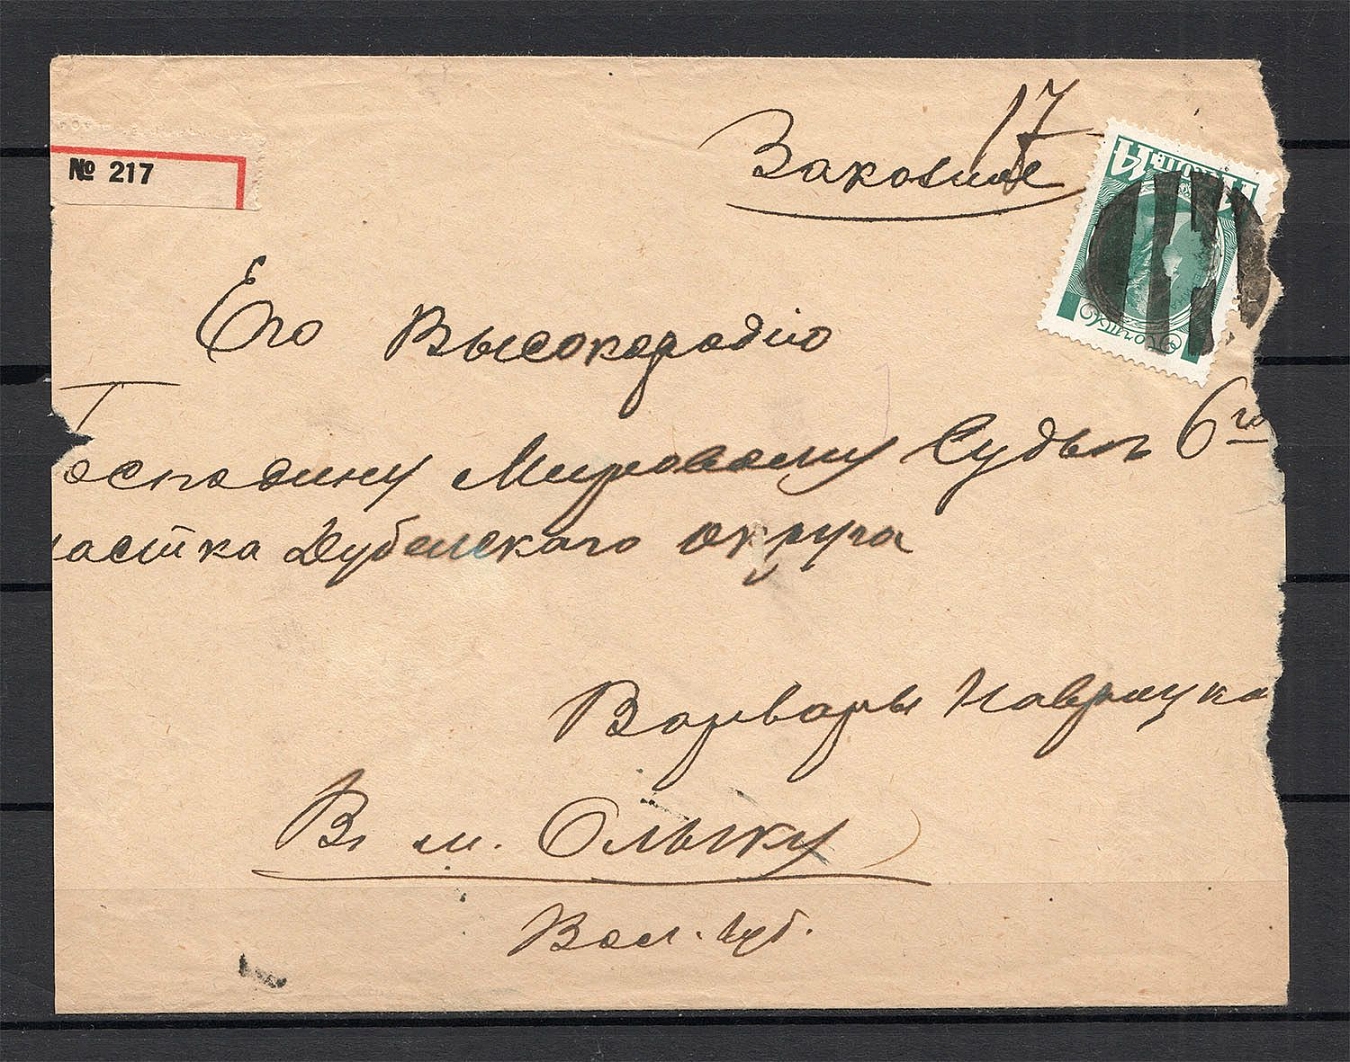 17
Заказное
№ 217
14 КОП. 14
Его Высокородію
Господину Мировому Судьѣ 6го
участка Дубенскаго округа
Варвары Наврацко
Въ м. Олыку
Вол. губ.